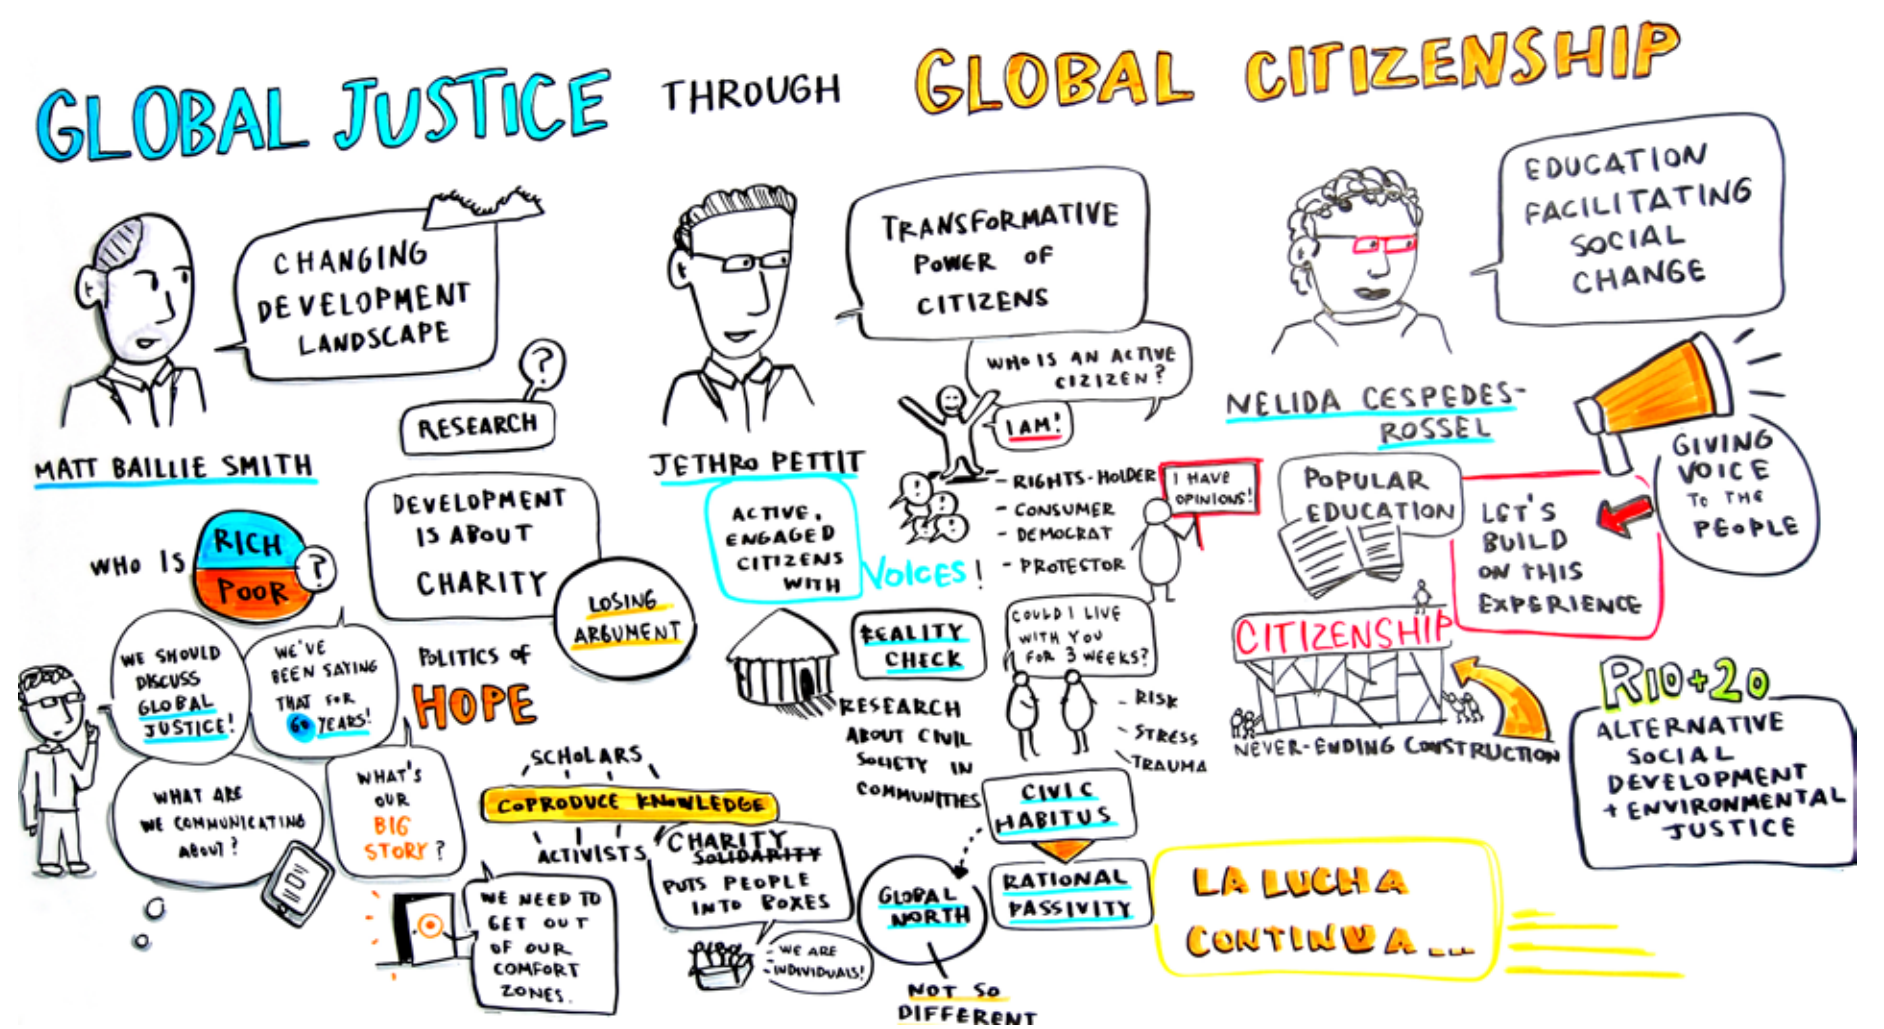 GLOBAL JUSTICE THROUGH GLOBAL CITIZENSHIP
CHANGING
DEVELOPMENT
LANDSCAPE
MATT BAILLIE SMITH
RESEARCH
?
WHO IS
RICH
POOR
?
DEVELOPMENT
IS ABOUT
CHARITY
LOSING
ARGUMENT
WE SHOULD
DISCUSS
GLOBAL
JUSTICE!
WE'VE
BEEN SAYING
THAT FOR
60 YEARS!
POLITICS OF
HOPE
WHAT ARE
WE COMMUNICATING
ABOUT?
WHAT'S
OUR
BIG
STORY?
SCHOLARS
COPRODUCE KNOWLEDGE
ACTIVISTS
WE NEED TO
GET OUT
OF OUR
COMFORT
ZONES.
CHARITY
SOLIDARITY
PUTS PEOPLE
INTO BOXES
WE ARE
INDIVIDUALS!
TRANSFORMATIVE
POWER OF
CITIZENS
WHO IS AN ACTIVE
CIZIZEN?
I AM!
JETHRO PETTIT
ACTIVE,
ENGAGED
CITIZENS
WITH
VOICES!
- RIGHTS-HOLDER
- CONSUMER
- DEMOCRAT
- PROTESTOR
I HAVE
OPINIONS!
REALITY
CHECK
RESEARCH
ABOUT CIVIL
SOCIETY IN
COMMUNITIES
COULD I LIVE
WITH YOU
FOR 3 WEEKS?
- RISK
- STRESS
- TRAUMA
CIVIC
HABITUS
RATIONAL
PASSIVITY
GLOBAL
NORTH
NOT SO
DIFFERENT
EDUCATION
FACILITATING
SOCIAL
CHANGE
NELIDA CESPEDES-
ROSSEL
GIVING
VOICE
TO THE
PEOPLE
POPULAR
EDUCATION
LET'S
BUILD
ON THIS
EXPERIENCE
CITIZENSHIP
NEVER-ENDING CONSTRUCTION
RIO+20
ALTERNATIVE
SOCIAL
DEVELOPMENT
+ ENVIRONMENTAL
JUSTICE
LA LUCHA
CONTINUA...